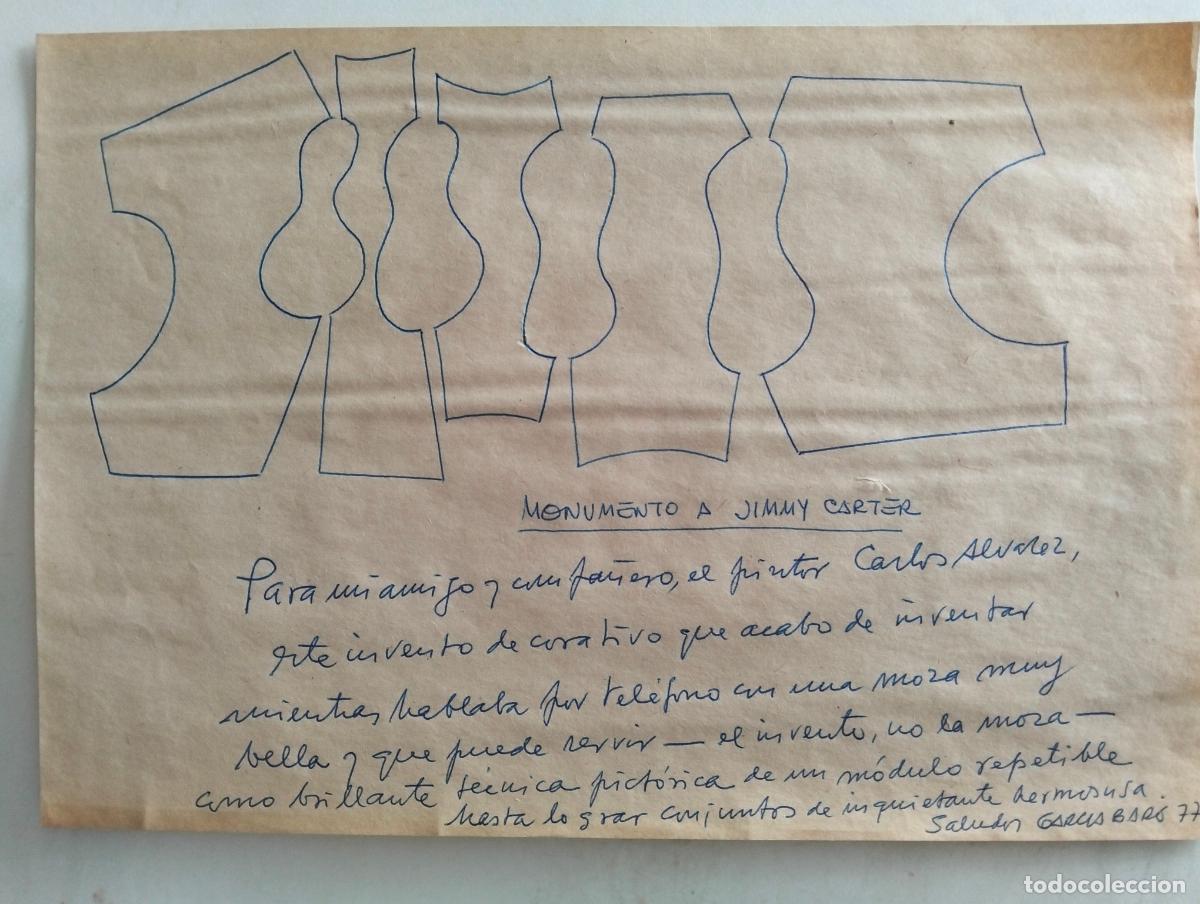 MONUMENTO A JIMMY CARTER
Para mi amigo y compañero, el pintor Carlos Alvarez,
este invento decorativo que acabo de inventar
mientras hablaba por teléfono con una moza muy
bella y que puede servir — el invento, no la moza —
como brillante técnica pictórica de un módulo repetible
hasta lograr conjuntos de inquietante hermosusa.
Saludos GARCIA BARÓ 77
todocoleccion